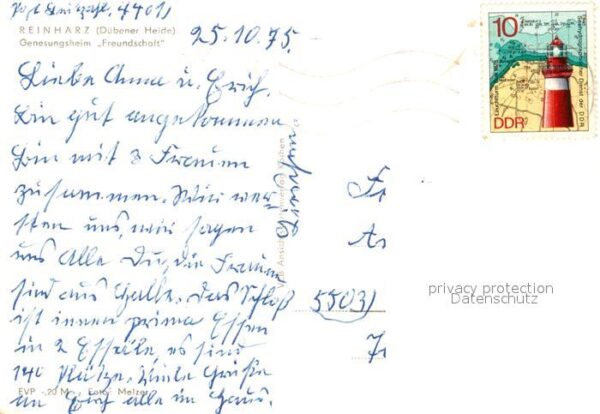 Post Leitzahl. 4401
REINHARZ (Dübener Heide)
Genesungsheim „Freundschaft"
25.10.75.
Liebe Anna u. Erich.
Bin gut angekommen
bin mit 3 Frauen
zusammen. Wir ver-
stehen uns, wir sagen
uns Alle Du, die Frauen
sind aus Halle. Das Schloß
ist innen prima Essen
in 2 Esssäle, es sind
140 Plätze. Viele Grüße
an Euch alle im Haus.
EVP -,20 M Foto: Melzer
10
DDR
Seehydrographischer Dienst der DDR
Fr
An
5503
7
privacy protection
Datenschutz